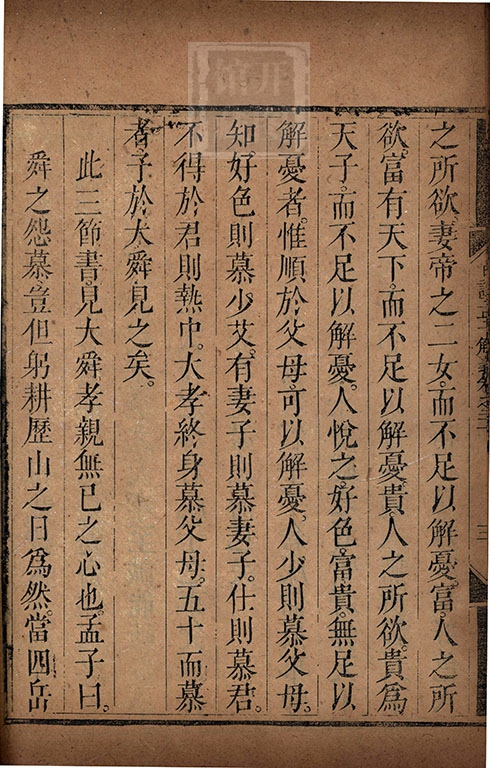 之所欲妻帝之二女而不足以解憂富人之所
欲富有天下而不足以解憂貴人之所欲貴爲
天子而不足以解憂人悅之好色富貴無足以
解憂者惟順於父母可以解憂人少則慕父母
知好色則慕少艾有妻子則慕妻子仕則慕君
不得於君則熱中大孝終身慕父母五十而慕
者予於大舜見之矣
此三節書見大舜孝親無已之心也孟子曰
舜之怨慕豈但躬耕歷山之日爲然當四岳